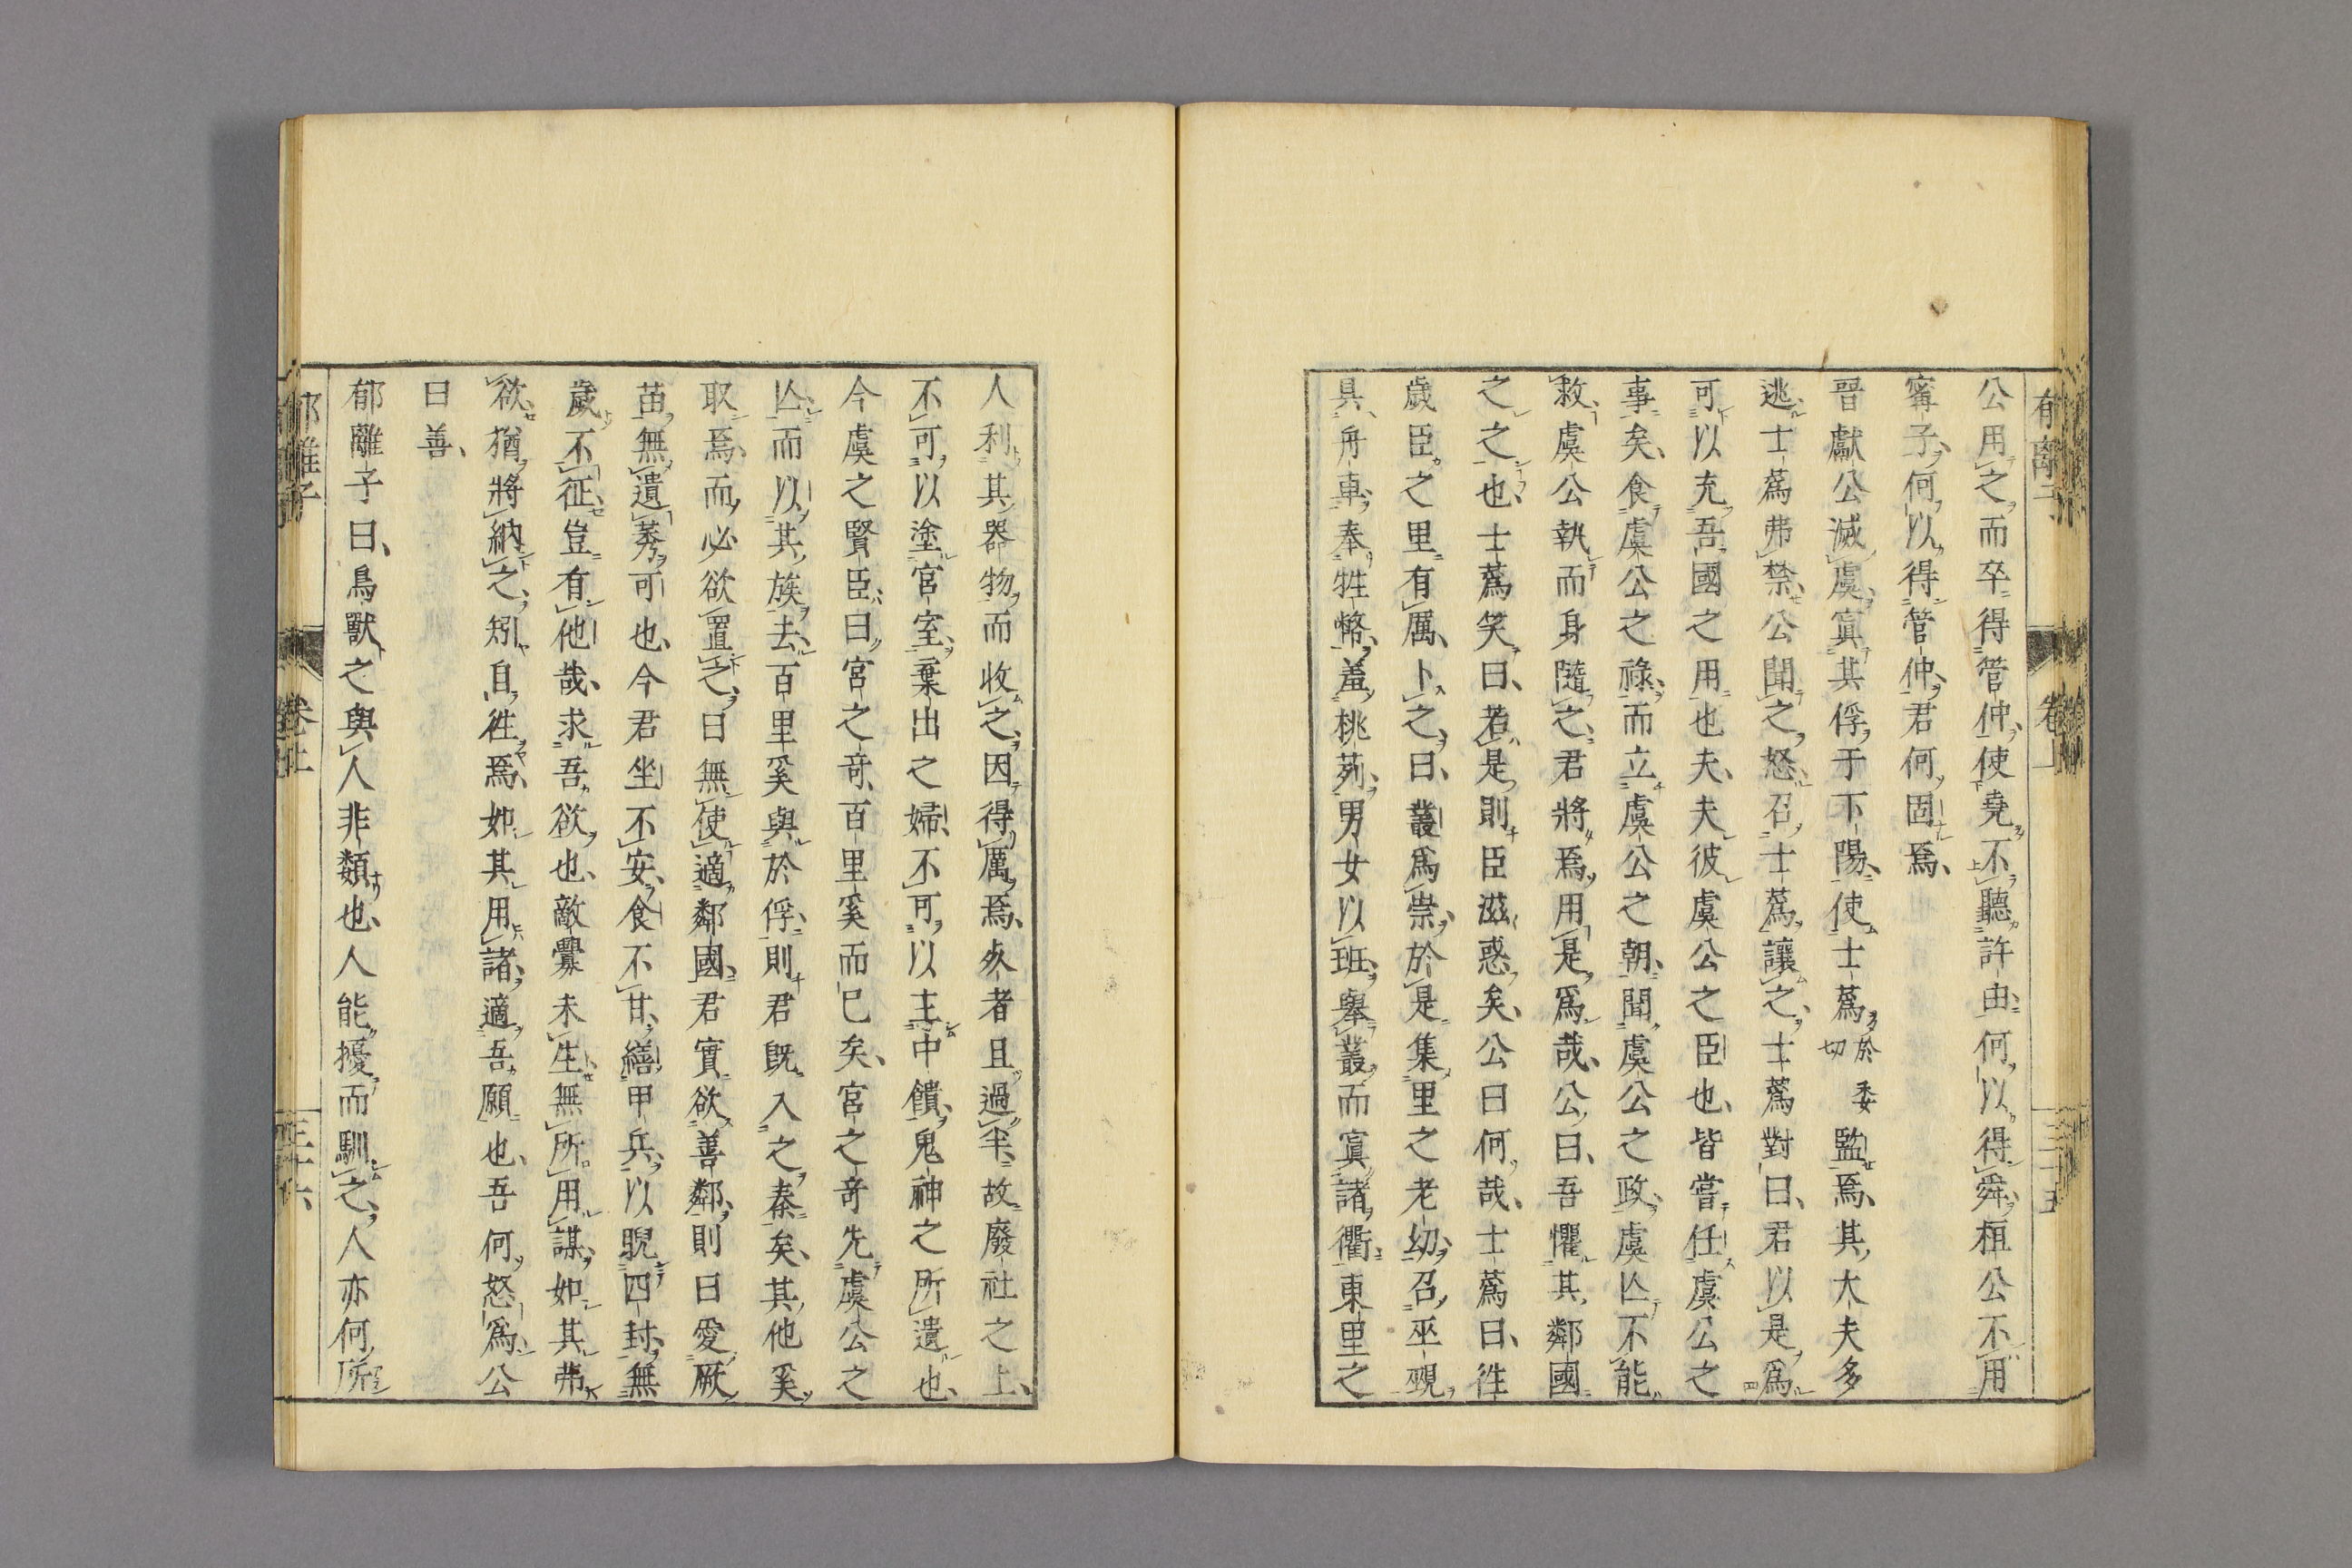 公用之而卒得管仲使堯不聽許由何以得舜桓公不用
甯子何以得管仲君何固焉
晉獻公滅虞寘其俘于下陽使士蔿於委切監焉其大夫多
逃士蔿弗禁公聞之怒召士蔿讓之士蔿對曰君以是爲
可以充吾國之用也夫夫彼虞公之臣也皆嘗任虞公之
事矣食虞公之祿而立虞公之朝聞虞公之政虞亾不能
救虞公執而身隨之君將焉用是爲哉公曰吾懼其鄰國
之之也士蔿笑曰若是則臣滋惑矣公曰何哉士蔿曰徃
歲臣之里有厲卜之曰叢爲祟於是集里之老幼召巫覡
具舟車奉牲幣羞桃茢男女以班舉叢而寘諸衢東里之
人利其器物而收之因得厲焉死者且過半故廢社之土
不可以塗宮室棄出之婦不可以主中饋鬼神之所遺也
今虞之賢臣曰宮之奇百里奚而已矣宮之奇先虞公之
亾而以其族去百里奚與於俘則君旣入之秦矣其他奚
取焉而必欲置之曰無使適鄰國君實欲善鄰則曰愛厥
苗無遺莠可也今君坐不安食不甘繕甲兵以睨四封無
歲不征豈有他哉求吾欲也敵釁未生無所用謀如其弗
欲猶將納之矧自徃焉如其用諸適吾願也吾何怒爲公
曰善
郁離子曰鳥獸之與人非類也人能擾而馴之人亦何所
郁離子
卷上
三十五
郁離子
卷上
三十六